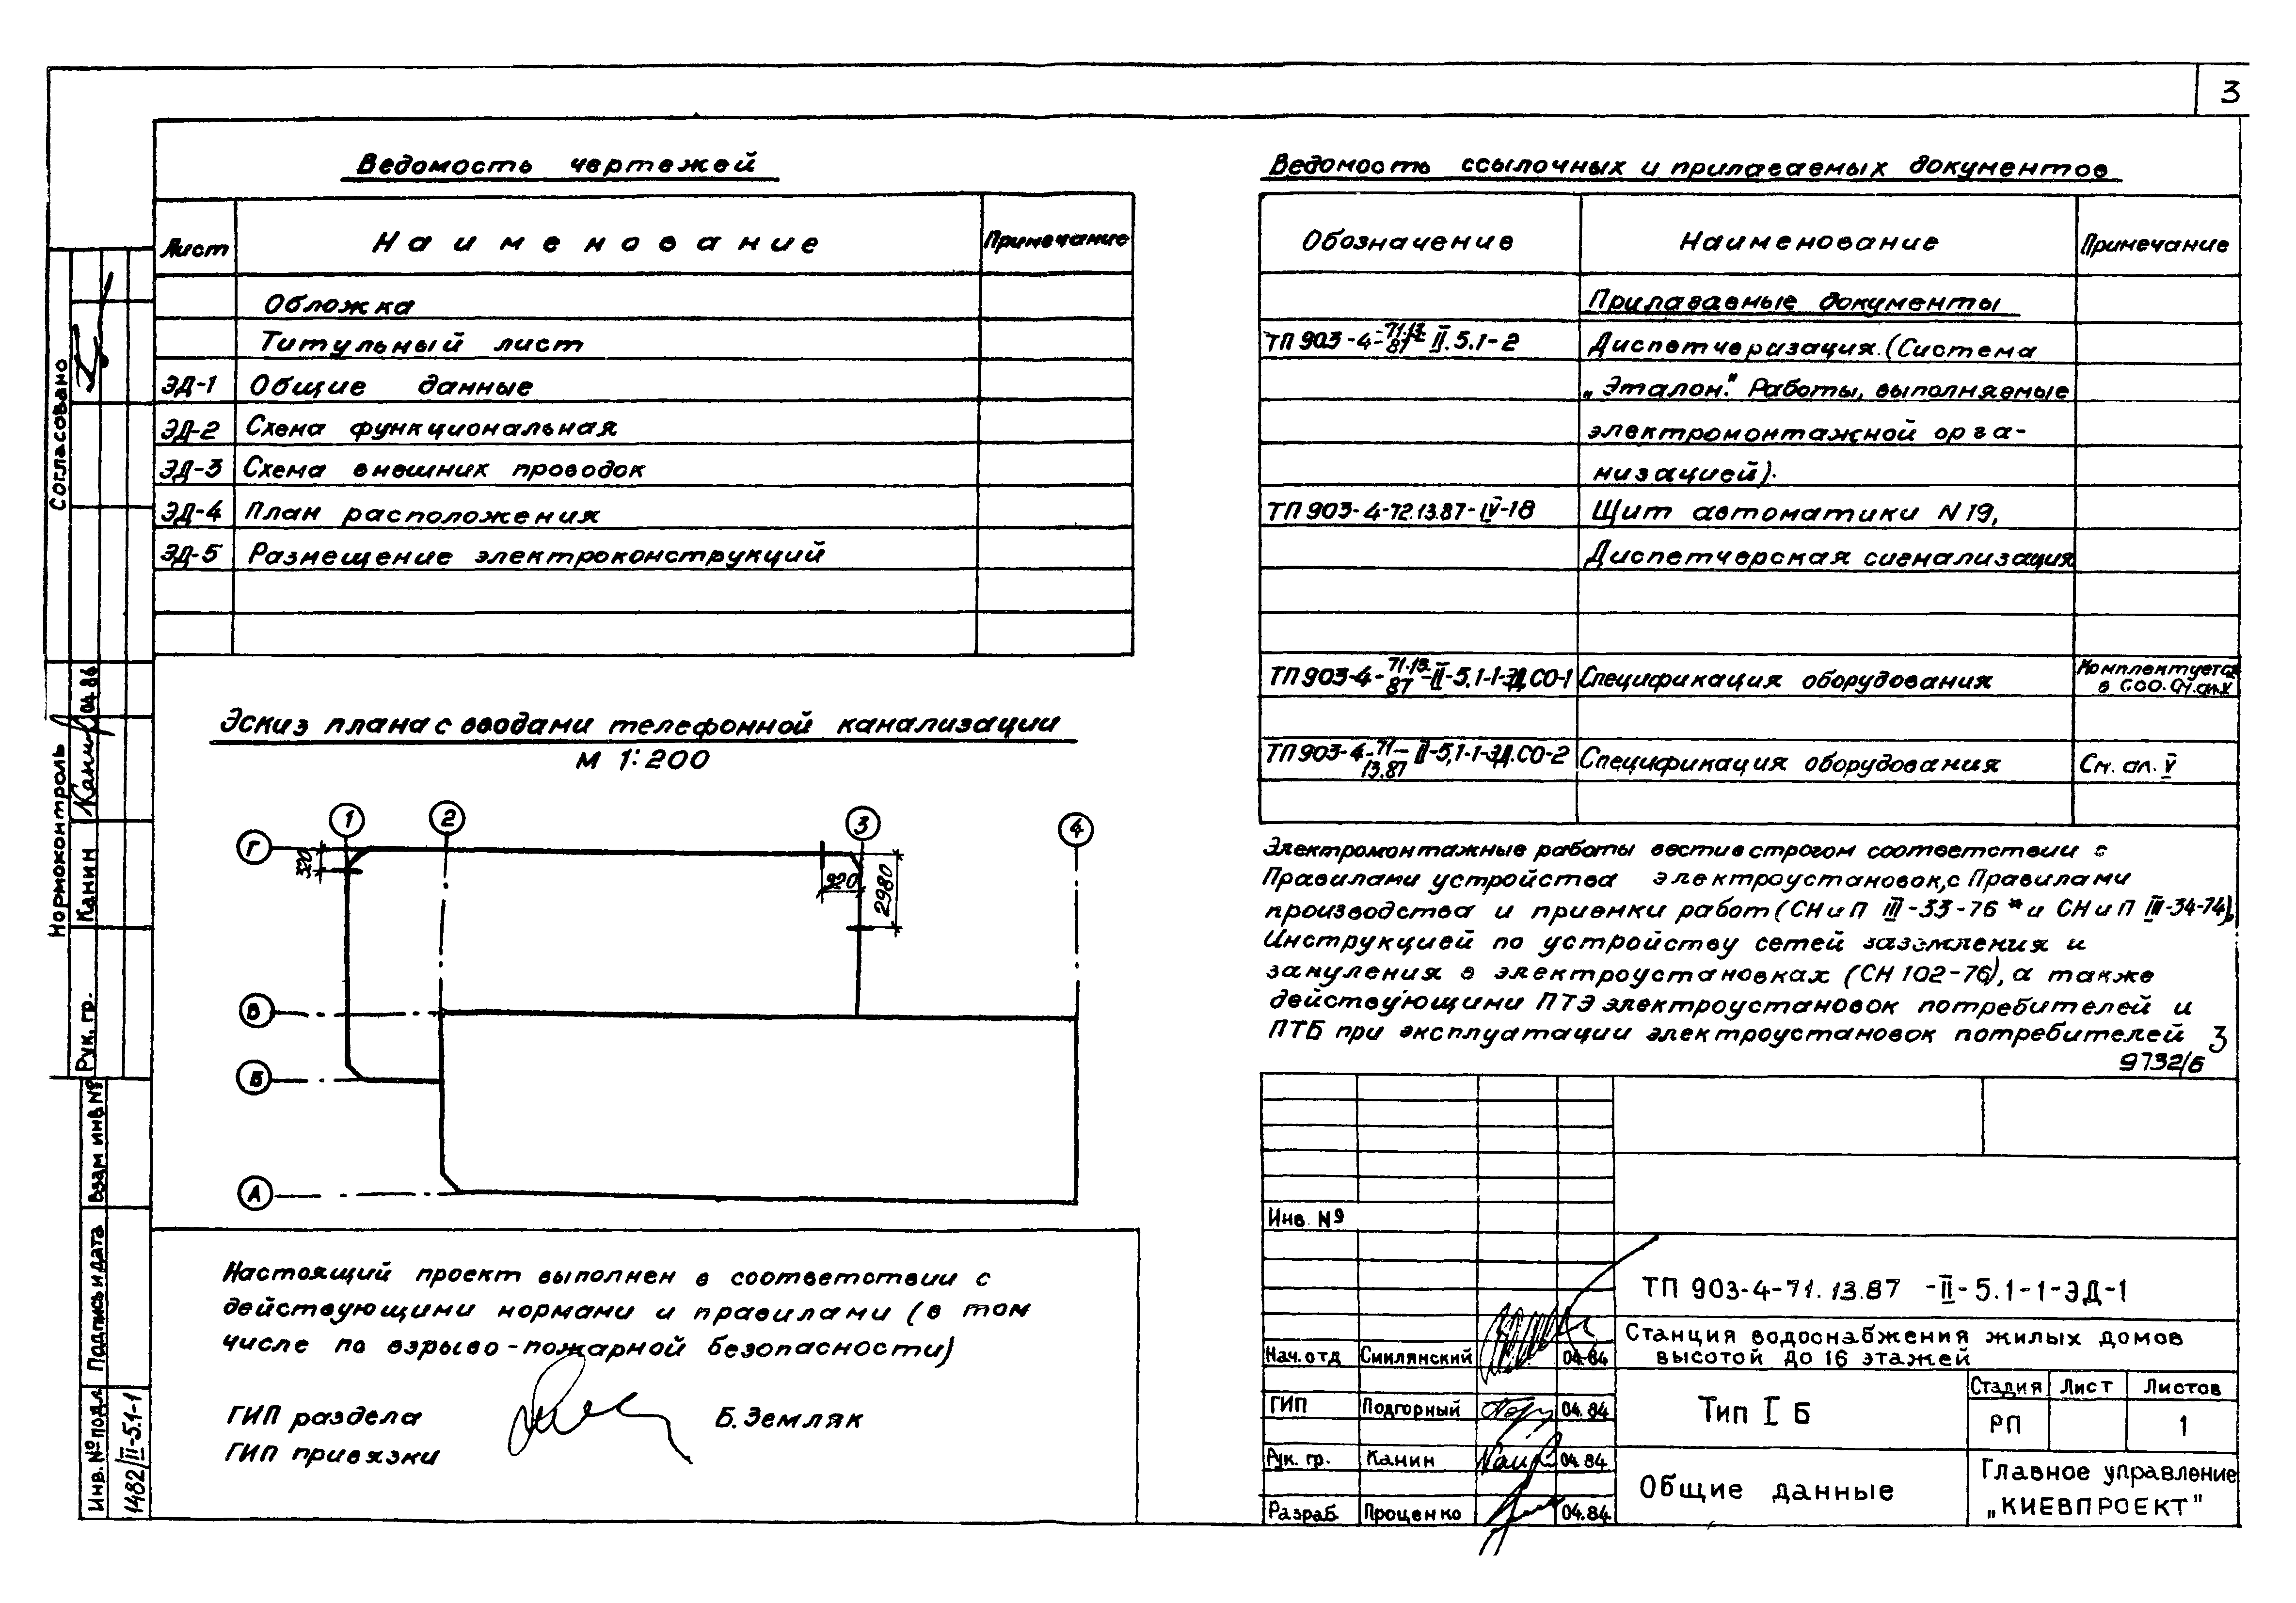 3
Ведомость чертежей
Лист Наименование Примечание
Обложка
Титульный лист
ЭД-1 Общие данные
ЭД-2 Схема функциональная
ЭД-3 Схема внешних проводок
ЭД-4 План расположения
ЭД-5 Размещение электроконструкций
Эскиз плана с вводами телефонной канализации
М 1:200
1 2 3 4
Г
320
920
2980
В
Б
А
Настоящий проект выполнен в соответствии с
действующими нормами и правилами (в том
числе по взрыво-пожарной безопасности)
ГИП раздела Б. Земляк
ГИП привязки
Ведомость ссылочных и прилагаемых документов
Обозначение Наименование Примечание
Прилагаемые документы
ТП 903-4-71.13.87-II.5.1-2 Диспетчеризация. (Система
„Эталон." Работы, выполняемые
электромонтажной орга-
низацией).
ТП 903-4-72.13.87-IV-18 Щит автоматики N19,
Диспетчерская сигнализация
ТП 903-4-71.13.87-II-5.1-1-ЭД.СО-1 Спецификация оборудования Комплектуется
в
ТП 903-4-71-13.87 II-5,1-1-ЭД.СО-2 Спецификация оборудования См. ал. V
Электромонтажные работы вести в строгом соответствии с
Правилами устройства электроустановок, с Правилами
производства и приемки работ (СН и П III-33-76* и СН и П III-34-74),
Инструкцией по устройству сетей заземления и
зануления в электроустановках (СН 102-76), а также
действующими ПТЭ электроустановок потребителей и
ПТБ при эксплуатации электроустановок потребителей 3
9732/6
Инв. №
ТП 903-4-71.13.87 -II-5.1-1-ЭД-1
Станция водоснабжения жилых домов
высотой до 16 этажей
Нач. отд Смилянский 04.84
ГИП Подгорный 04.84
Рук. гр. Канин 04.84
Разраб. Проценко 04.84
Тип I Б
Стадия Лист Листов
РП 1
Общие данные
Главное управление
„КИЕВПРОЕКТ"
Согласовано
Нормоконтроль
Рук. гр. Канин 04.86
Взам инв №
Подпись и дата
Инв. № подл
1482/II-5.1-1